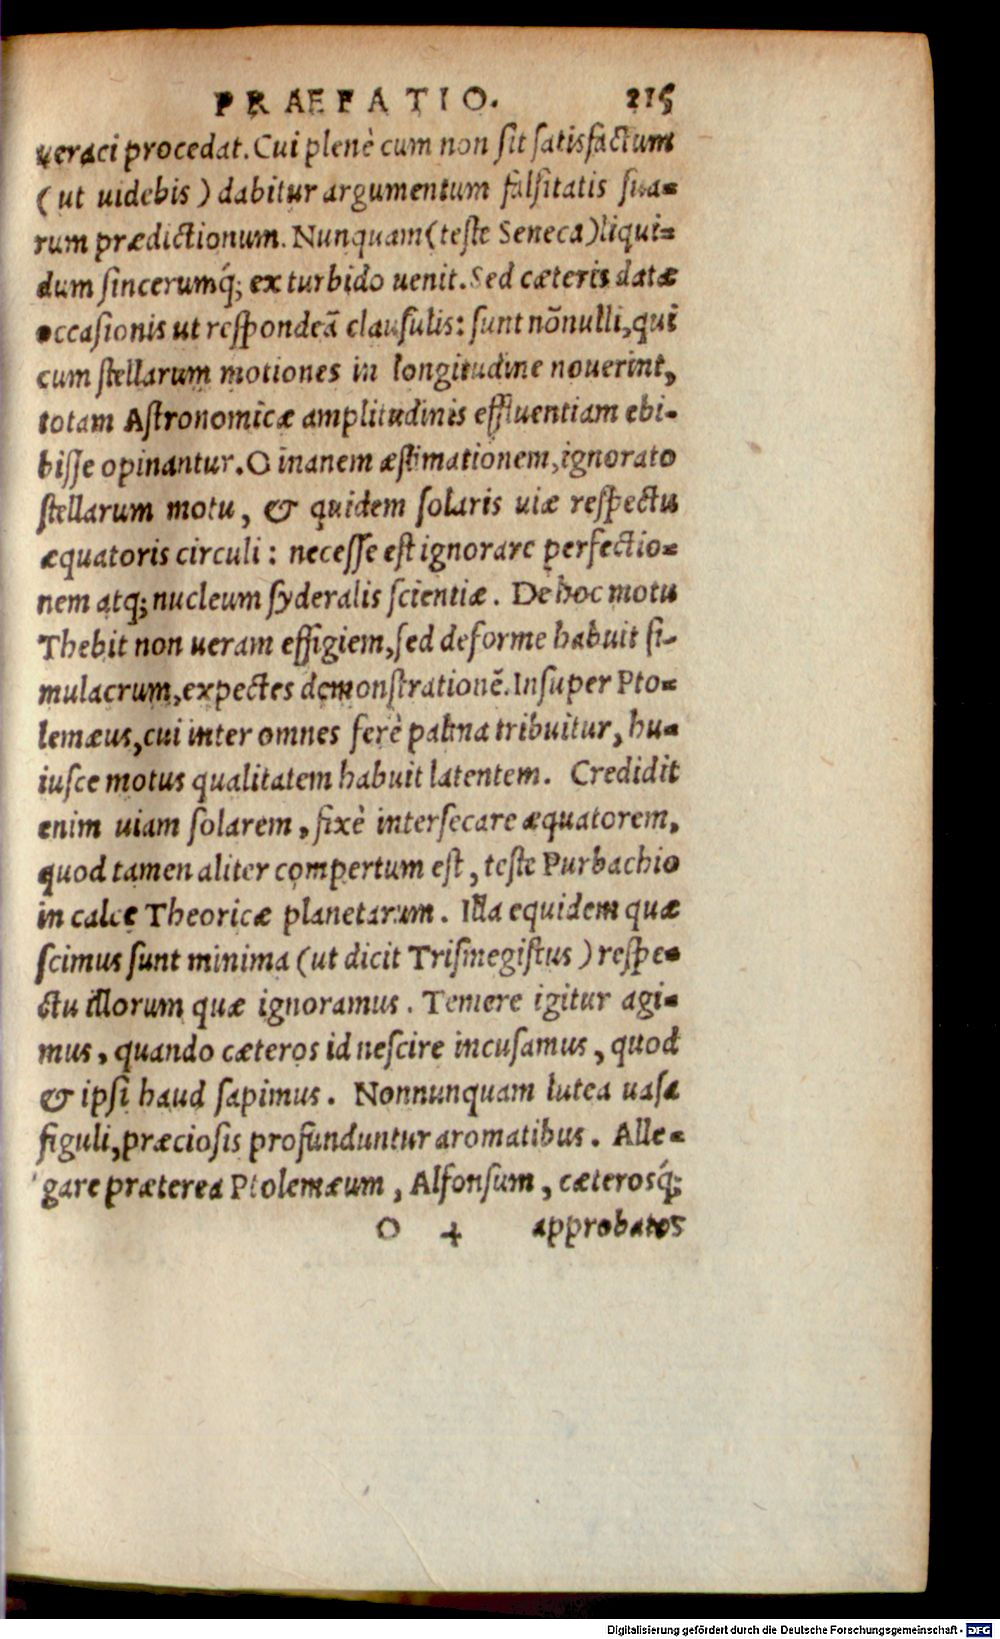 PRAEFATIO. 215
ueraci procedat. Cui plenè cum non sit satisfactum
( ut uidebis ) dabitur argumentum falsitatis sua-
rum prædictionum. Nunquam (teste Seneca) liqui-
dum sincerumq́; ex turbido uenit. Sed cæteris datæ
occasionis ut respondeā clausulis: sunt nōnulli, qui
cum stellarum motiones in longitudine nouerint,
totam Astronomicæ amplitudinis effluentiam ebi-
bisse opinantur. O inanem æstimationem, ignorato
stellarum motu, & quidem solaris uiæ respectu
æquatoris circuli : necesse est ignorare perfectio-
nem atq; nucleum syderalis scientiæ. De hoc motu
Thebit non ueram effigiem, sed deforme habuit si-
mulacrum, expectes demonstrationē. Insuper Pto-
lemæus, cui inter omnes ferè palma tribuitur, hu-
iusce motus qualitatem habuit latentem. Credidit
enim uiam solarem, fixè intersecare æquatorem,
quod tamen aliter compertum est, teste Purbachio
in calce Theoricæ planetarum. Illa equidem quæ
scimus sunt minima (ut dicit Trismegistus) respe-
ctu illorum quæ ignoramus. Temere igitur agi-
mus, quando cæteros id nescire incusamus, quod
& ipsi haud sapimus. Nonnunquam lutea uasa
figuli, præciosis profunduntur aromatibus. Alle-
gare præterea Ptolemæum, Alfonsum, cæterosq́;
O 4 approbatos
Digitalisierung gefördert durch die Deutsche Forschungsgemeinschaft - DFG